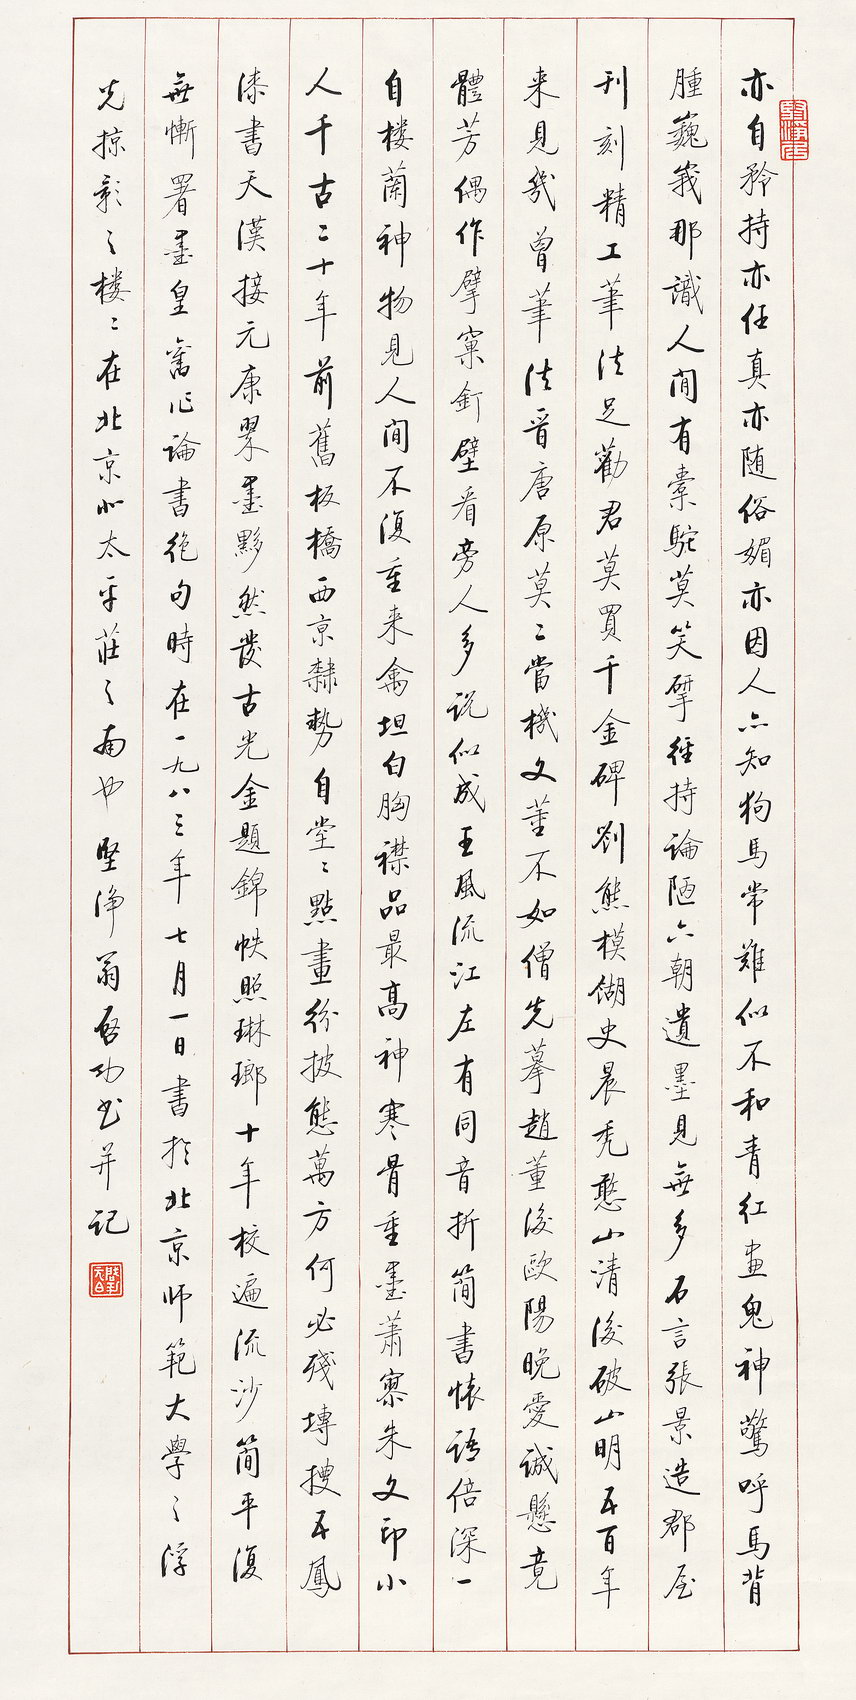 亦自矜持亦任真亦随俗媚亦因人亦知狗馬常難似不和青紅畫鬼神驚呼馬背
腫巍峩那識人間有橐駝莫笑擘經持論陋六朝遺墨見無多石言張景造郡屋
刊刻精工筆法足勸君莫買千金碑劉熊模餬史晨禿憨山清後破山明五百年
来見幾曾筆法晋唐原莫二當機文董不如僧先摹趙董後歐陽晚愛誠懸竟
體芳偶作擘窠釘壁看旁人多説似成王風流江左有同音折簡書懷語倍深一
自楼蘭神物見人間不復重来禽坦白胸襟品最高神寒骨重墨蕭寥朱文印小
人千古二十年前舊板橋西京隸勢自堂堂點畫紛披態萬方何必殘塼搜五鳳
漆書天漢接元康翠墨黟然發古光金題錦帙照琳瑯十年校遍流沙簡平復
無慚署墨皇舊作論書絶句時在一九八三年七月一日書於北京师範大學之浮
光掠影之楼楼在北京小太平莊之南也 堅净翁啓功书并記